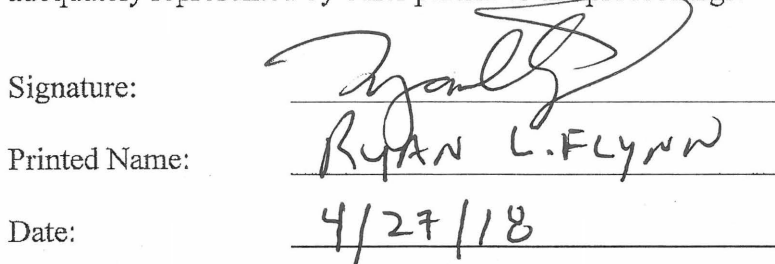 Signature:
Printed Name: RYAN L. FLYNN
Date: 4/27/18